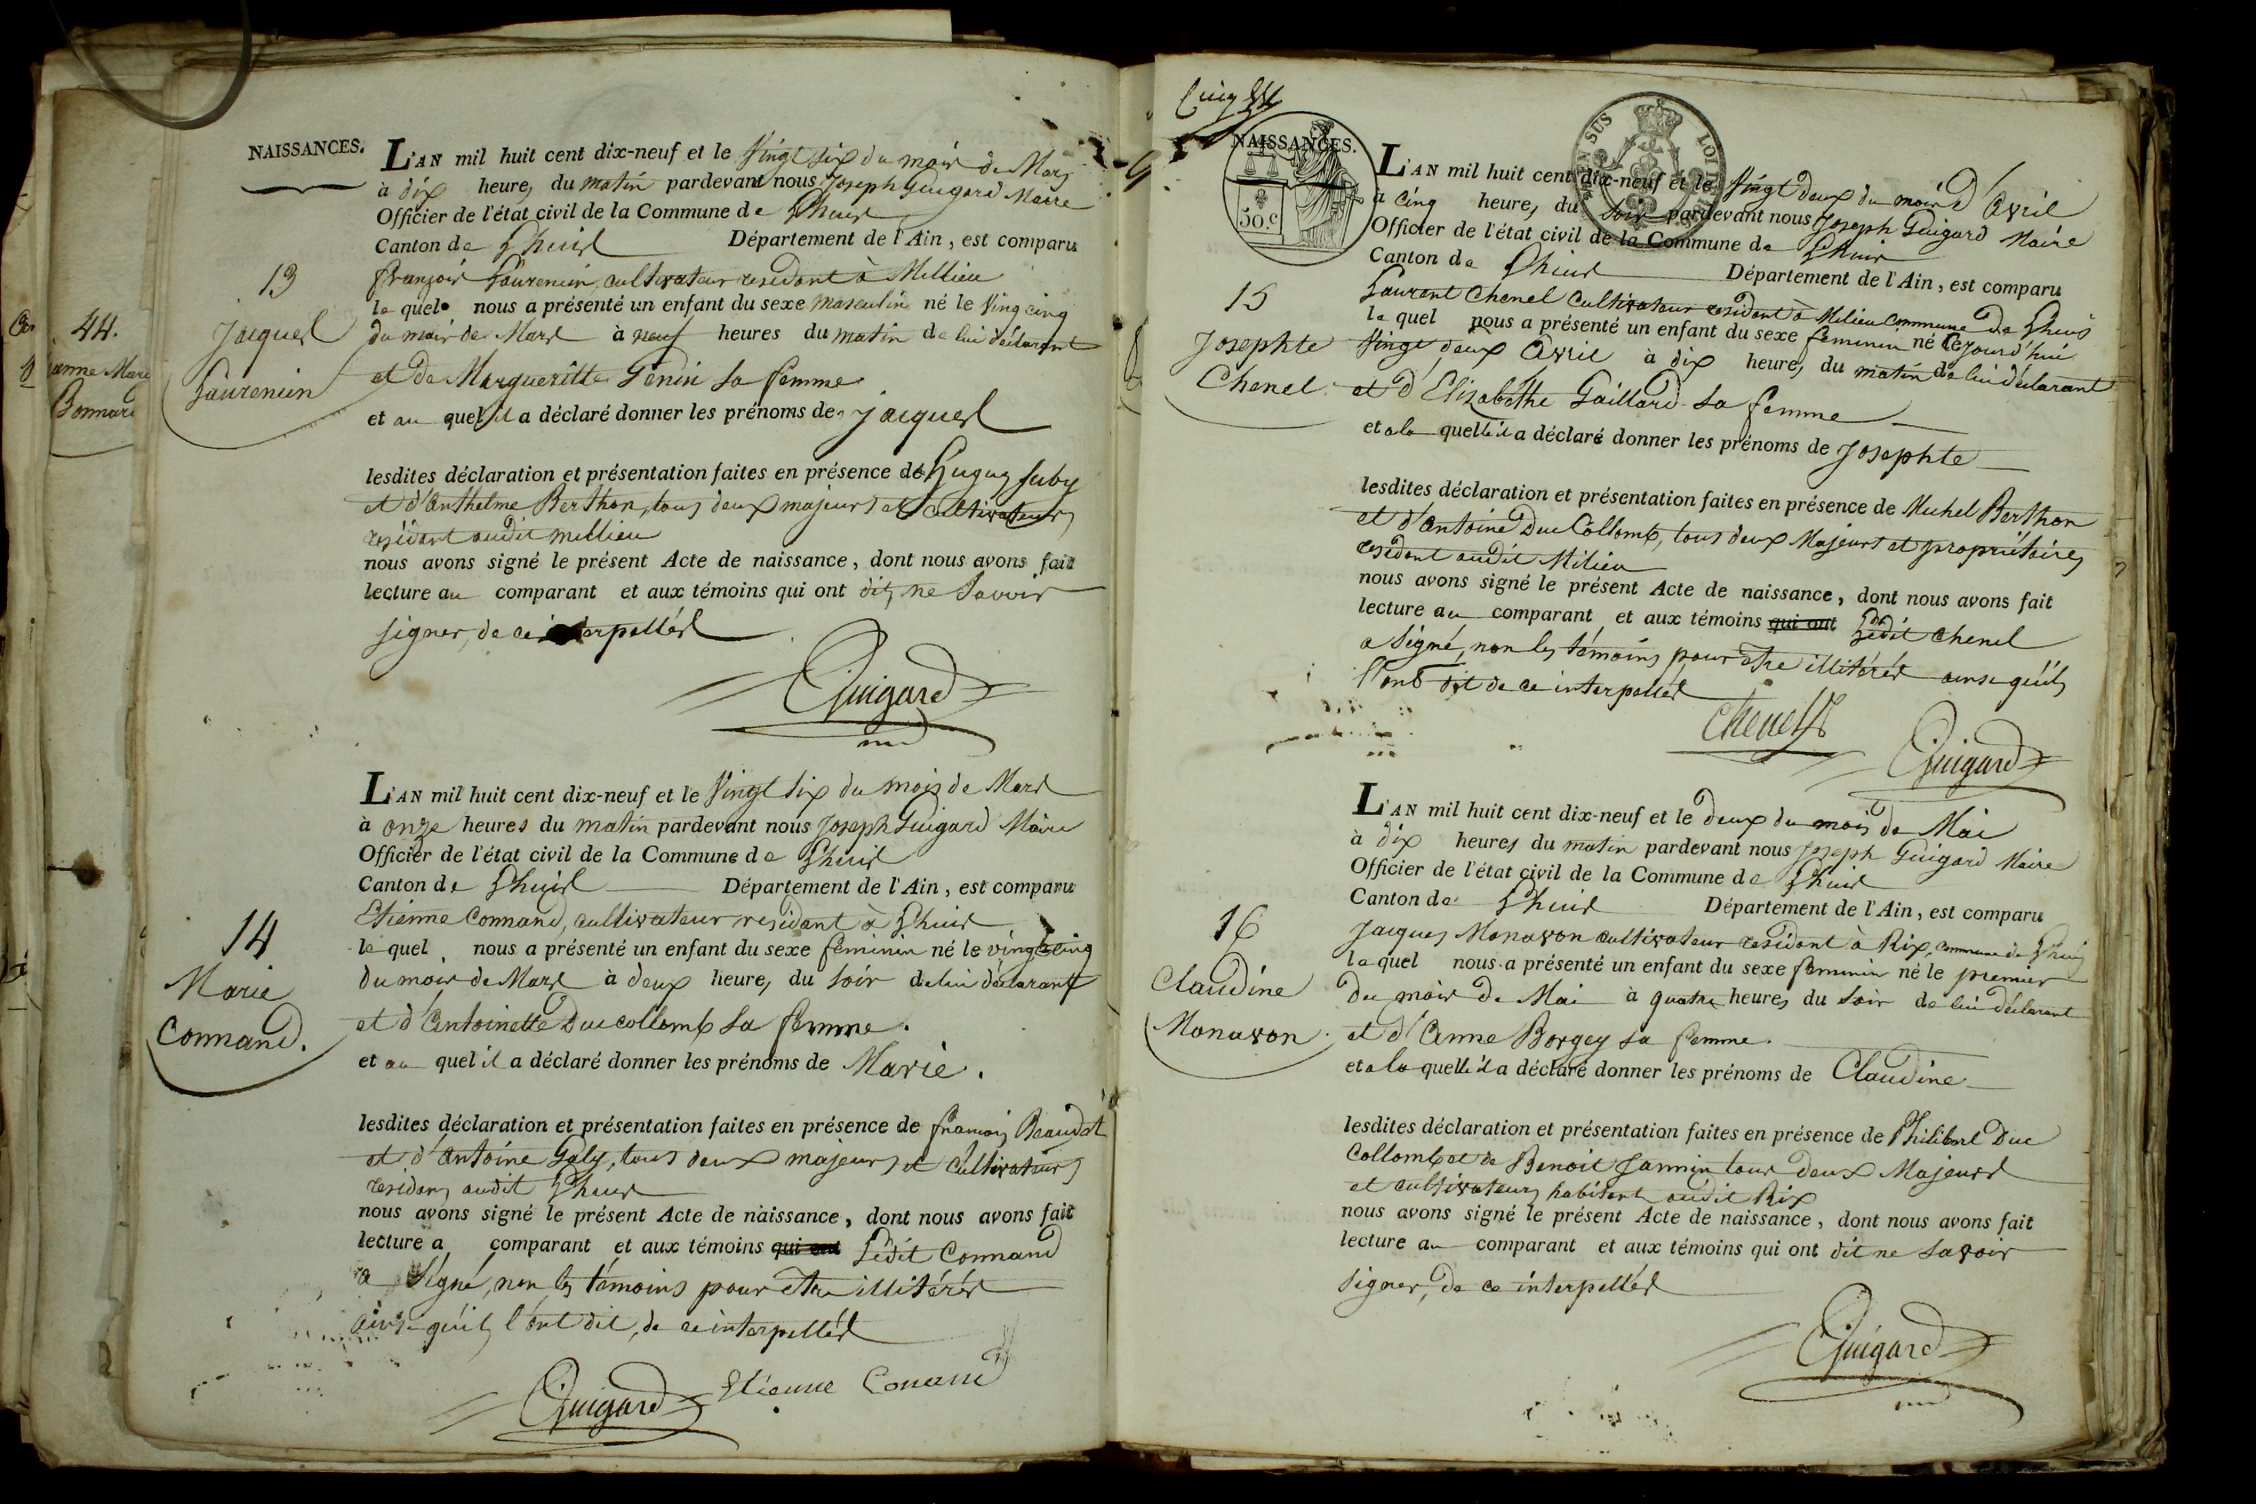 44.
Bonnard
NAISSANCES.
L'AN mil huit cent dix-neuf et le Vingt six du mois de Mars
à dix heures du matin pardevant nous Joseph Guigard Maire
Officier de l'état civil de la Commune de Lhuis
Canton de Lhuis Département de l'Ain, est comparu
françois Laurencin, cultivateur residant à Millieu
le quel nous a présenté un enfant du sexe masculin né le Vingt cinq
du mois de Mars à neuf heures du matin de lui déclarant
et de Margueritte Genin sa femme
et au quel il a déclaré donner les prénoms de jacques
13
Jacques
Laurencin
lesdites déclaration et présentation faites en présence de
et d'anthelme Berthon, tous deux majeurs et cultivateurs
residant audit millieu
nous avons signé le présent Acte de naissance, dont nous avons fait
lecture au comparant et aux témoins qui ont dit ne Savoir
signer, de ce interpellés
Guigard
L'AN mil huit cent dix-neuf et le Vingt six du mois de Mars
à onze heures du matin pardevant nous Joseph Guigard Maire
Officier de l'état civil de la Commune de Lhuis
Canton de Lhuis Département de l'Ain, est comparu
Etienne Connand, cultivateur residant à Lhuis
le quel nous a présenté un enfant du sexe feminin né le vingt cinq
du mois de Mars à deux heures du soir de lui déclarant
et d'Antoinette Duccollomb sa femme.
et au quel il a déclaré donner les prénoms de Marie.
14
Marie
Connand.
lesdites déclaration et présentation faites en présence de françois Beaudet
et d'antoine Galy, tous deux majeurs et cultivateurs
residans audit Lhuis
nous avons signé le présent Acte de naissance, dont nous avons fait
lecture a comparant et aux témoins qui ont Ledit Connand
a Signé, non les témoins pour être illitérés
ainsi qu'ils l'ont dit, de ce interpellés
Guigard Etienne Conand
Cinq
NAISSANCES.
50.c
L'AN mil huit cent dix-neuf et le Vingt deux du mois d'Avril
à cinq heures du soir pardevant nous Joseph Guigard Maire
Officier de l'état civil de la Commune de Lhuis
Canton de Lhuis Département de l'Ain, est comparu
Laurent Chenel Cultivateur residant à Milieu commune de Lhuis
le quel nous a présenté un enfant du sexe feminin né cejourd'hui
Vingt deux Avril à dix heures du matin de lui déclarant
et d'Elizabethe Gaillard sa femme
et a la quelle il a déclaré donner les prénoms de Josephte
15
Josephte
Chenel
lesdites déclaration et présentation faites en présence de Michel Berthon
et d'antoine Duc Collomb, tous deux Majeurs et propriétaires
residant audit Milieu
nous avons signé le présent Acte de naissance, dont nous avons fait
lecture au comparant et aux témoins qui ont Ledit Chenel
a signé, non les témoins pour être illitérés ainsi qu'ils
l'ont dit de ce interpellés
Chenel
Guigard
L'AN mil huit cent dix-neuf et le deux du mois de Mai
à dix heures du matin pardevant nous Joseph Guigard Maire
Officier de l'état civil de la Commune de Lhuis
Canton de Lhuis Département de l'Ain, est comparu
Jacques Monavon cultivateur residant à Rix, commune de Lhuis
le quel nous a présenté un enfant du sexe feminin né le premier
du mois de Mai à quatre heures du soir de lui déclarant
et d'Anne Borgey sa femme.
et a la quelle il a déclaré donner les prénoms de Claudine
16
Claudine
Monavon.
lesdites déclaration et présentation faites en présence de Philibert Duc
Collomb et de Benoit Jannin tous deux Majeurs
et cultivateurs habitant audit Rix
nous avons signé le présent Acte de naissance, dont nous avons fait
lecture au comparant et aux témoins qui ont dit ne savoir
signer, de ce interpellés
Guigard